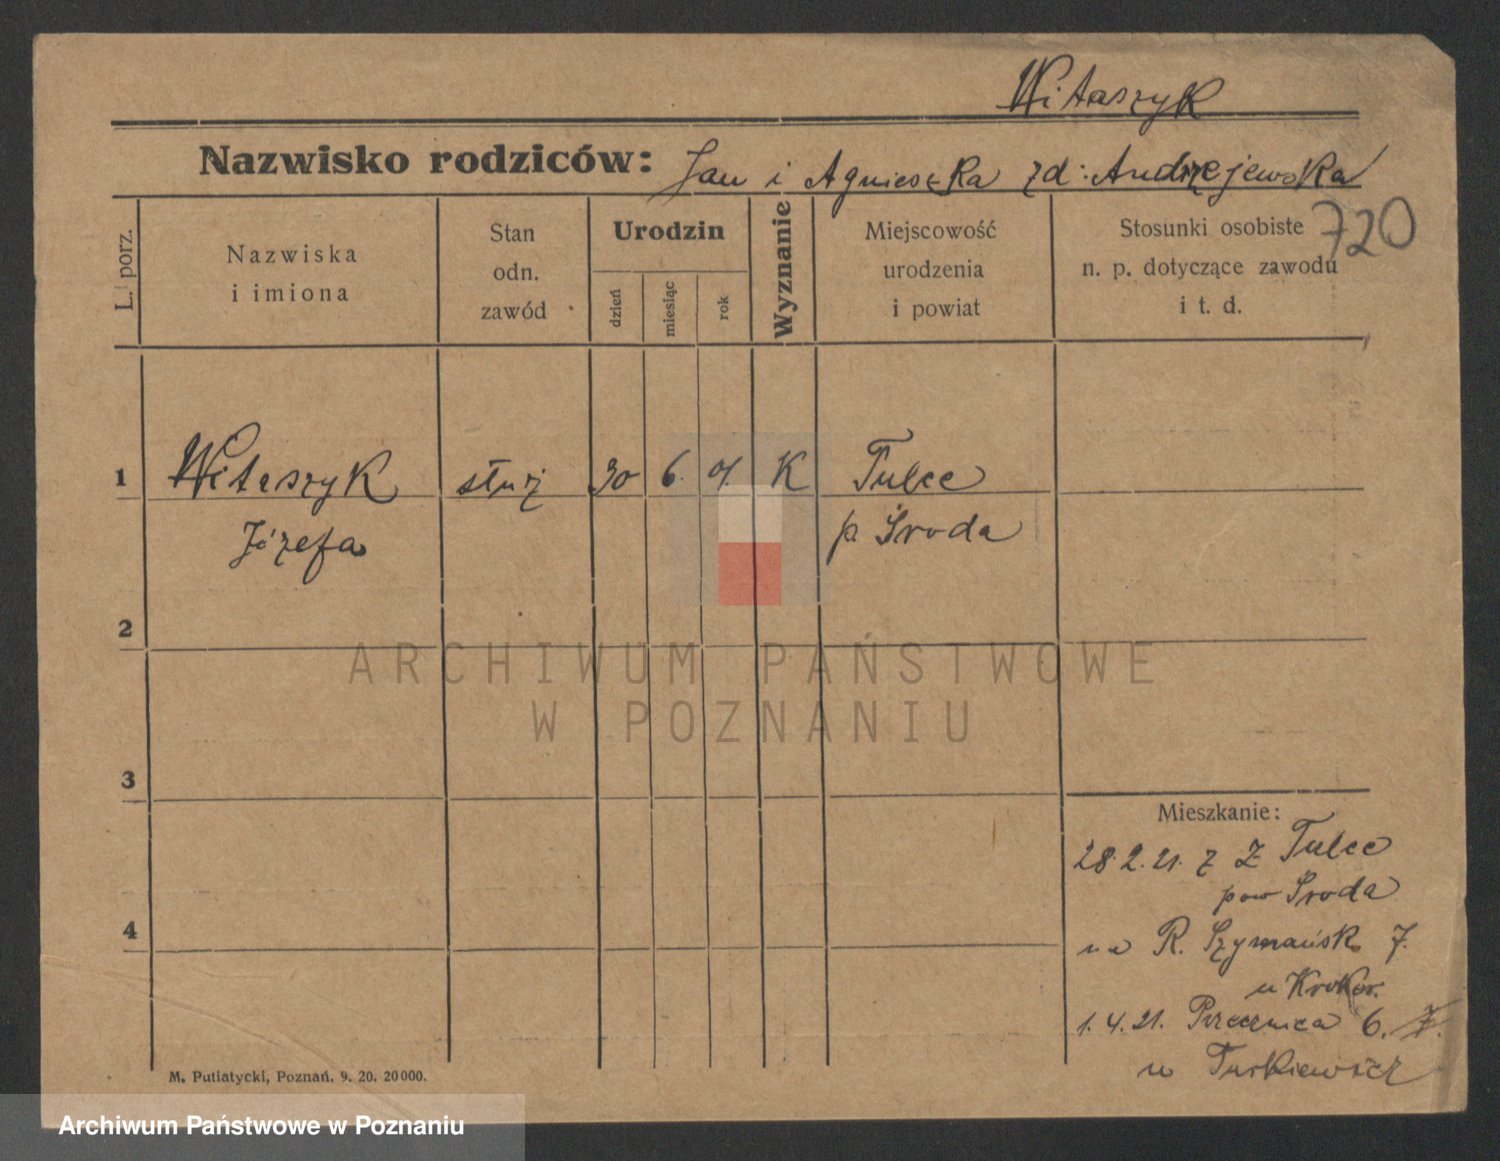 Witaszyk
Nazwisko rodziców: Jan i Agnieszka zd: Andrzejewska
720
L. porz.
Nazwiska
i imiona
Stan
odn.
zawód
Urodzin
dzień
miesiąc
rok
Wyznanie
Miejscowość
urodzenia
i powiat
Stosunki osobiste
n. p. dotyczące zawodu
i t. d.
1 Witaszyk służ 30 6. 01. K Tulce
Józefa p. Środa
2
ARCHIWUM PAŃSTWOWE
W POZNANIU
3
Mieszkanie:
28.2.21. z Tulce
pow Środa
4
na R. Szymańsk 7.
u
1.4.21. 6. 7.
u
M. Putiatycki, Poznań. 9. 20. 20 000.
Archiwum Państwowe w Poznaniu